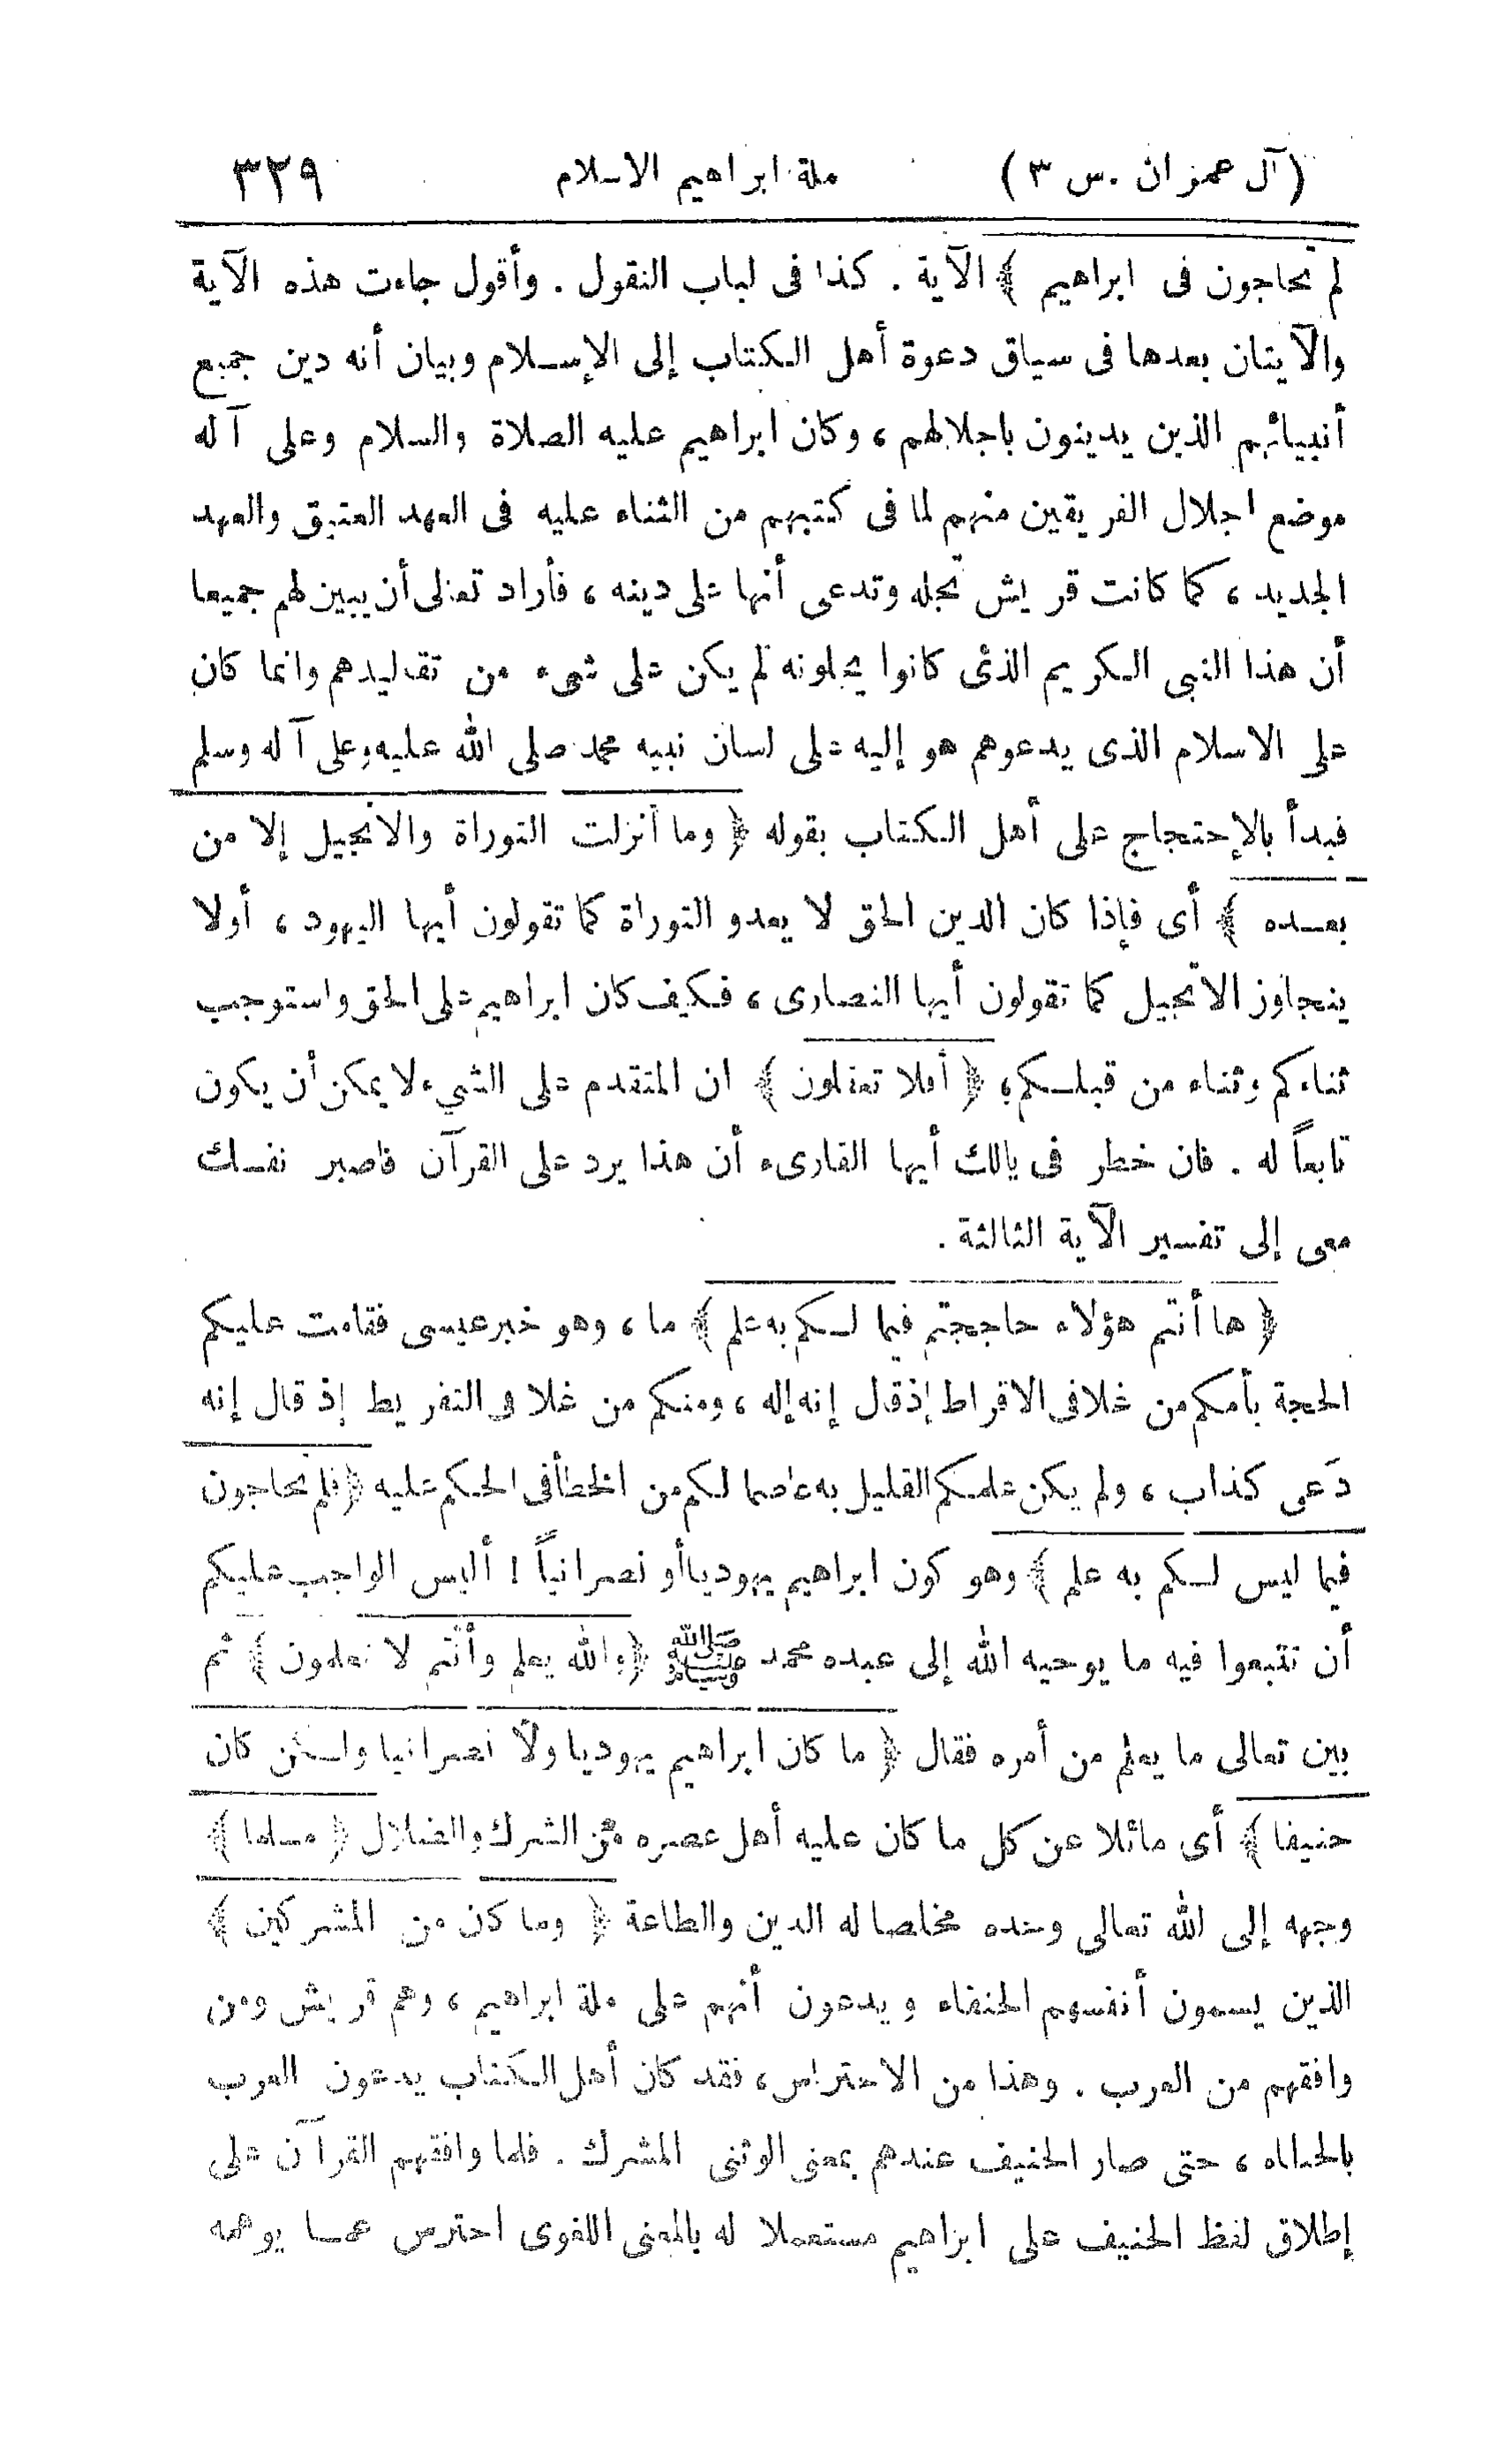 (آل عمران . س ٣) ملة ابراهيم الاسلام ٣٢٩
لم تحاجون فى ابراهيم ﴾ الآية . كذا فى لباب النقول . وأقول جاءت هذه الآية
والآيتان بعدها فى سياق دعوة أهل الكتاب إلى الإسلام وبيان أنه دين جميع
أنبيائهم الذين يدينون باجلالهم ، وكان ابراهيم عليه الصلاة والسلام وعلى آله
موضع اجلال الفريقين منهم لما فى كتبهم من الثناء عليه فى العهد العتيق والعهد
الجديد ، كما كانت قريش تجله وتدعى أنها على دينه ، فأراد تعالى أن يبين لهم جميعا
أن هذا النبى الكريم الذى كانوا يجلونه لم يكن على شىء من تقاليدهم وانما كان
على الاسلام الذى يدعوهم هو إليه على لسان نبيه محمد صلى الله عليه وعلى آله وسلم
فبدأ بالإحتجاج على أهل الكتاب بقوله ﴿ وما أنزلت التوراة والانجيل إلا من
بعده ﴾ أى فإذا كان الدين الحق لا يعدو التوراة كما تقولون أيها اليهود ، أولا
يتجاوز الانجيل كما تقولون أيها النصارى ، فكيف كان ابراهيم على الحق واستوجب
ثناءكم وثناء من قبلكم؟ ﴿ أفلا تعقلون ﴾ ان المتقدم على الشيء لا يمكن أن يكون
تابعاً له . فان خطر فى بالك أيها القارىء أن هذا يرد على القرآن فاصبر نفسك
معى إلى تفسير الآية الثالثة .
﴿ ها أنتم هؤلاء حاججتم فيما لكم به علم ﴾ ما ، وهو خبر عيسى فقامت عليكم
الحجة بأمكم من غلا فى الافراط إذ قال إنه إله ، ومنكم من غلا فى التفريط إذ قال إنه
دَعى كذاب ، ولم يكن علمكم القليل به عاصما لكم من الخطأ فى الحكم عليه ﴿ فلم تحاجون
فيما ليس لكم به علم ﴾ وهو كون ابراهيم يهوديا أو نصرانياً ! أليس الواجب عليكم
أن تتبعوا فيه ما يوحيه الله إلى عبده محمد ﷺ ﴿ والله يعلم وأنتم لا تعلمون ﴾ ثم
بين تعالى ما يعلم من أمره فقال ﴿ ما كان ابراهيم يهوديا ولا نصرانيا ولكن كان
حنيفا ﴾ أى مائلا عن كل ما كان عليه أهل عصره من الشرك والضلال ﴿ مسلما ﴾
وجهه إلى الله تعالى وحده مخلصا له الدين والطاعة ﴿ وما كان من المشركين ﴾
الذين يسمون أنفسهم الحنفاء ويدعون أنهم على ملة ابراهيم ، وهم قريش ومن
وافقهم من العرب . وهذا من الاحتراس ، فقد كان أهل الكتاب يدعون العرب
بالحنفاء ، حتى صار الحنيف عندهم بمعنى الوثنى المشرك . فلما وافقهم القرآن على
إطلاق لفظ الحنيف على ابراهيم مستعملا له بالمعنى اللغوى احترس عما يوهمه